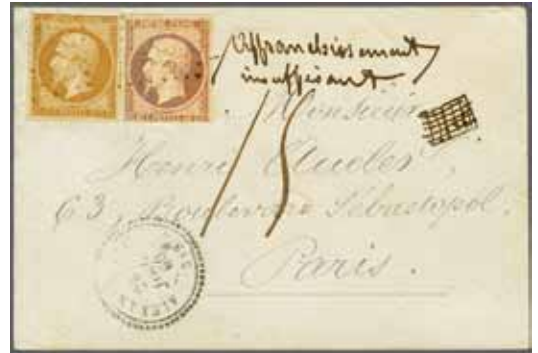 Affranchissement
insuffisant
15
Monsieur
Henri
63, Boulevard Sébastopol,
Paris.